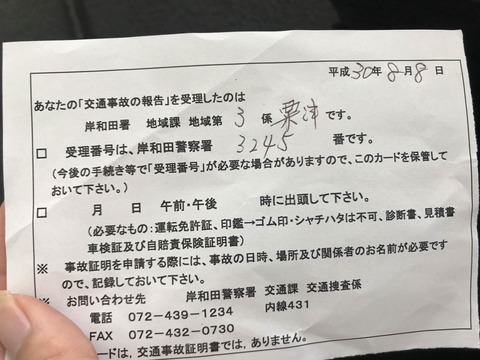 平成30年8月8日
あなたの「交通事故の報告」を受理したのは
岸和田署 地域課 地域第 3 係 粟津です。
□ 受理番号は、岸和田警察署 3245 番です。
(今後の手続き等で「受理番号」が必要な場合がありますので、このカードを保管して
おいて下さい。)
□ 月 日 午前・午後 時に出頭して下さい。
(必要なもの:運転免許証、印鑑→ゴム印・シャチハタは不可、診断書、見積書
車検証及び自賠責保険証明書)
※ 事故証明を申請する際には、事故の日時、場所及び関係者のお名前が必要です
ので、記録しておいて下さい。
※ お問い合わせ先 岸和田警察署 交通課 交通捜査係
電話 072-439-1234 内線431
FAX 072-432-0730
ードは、交通事故証明書では、ありません。